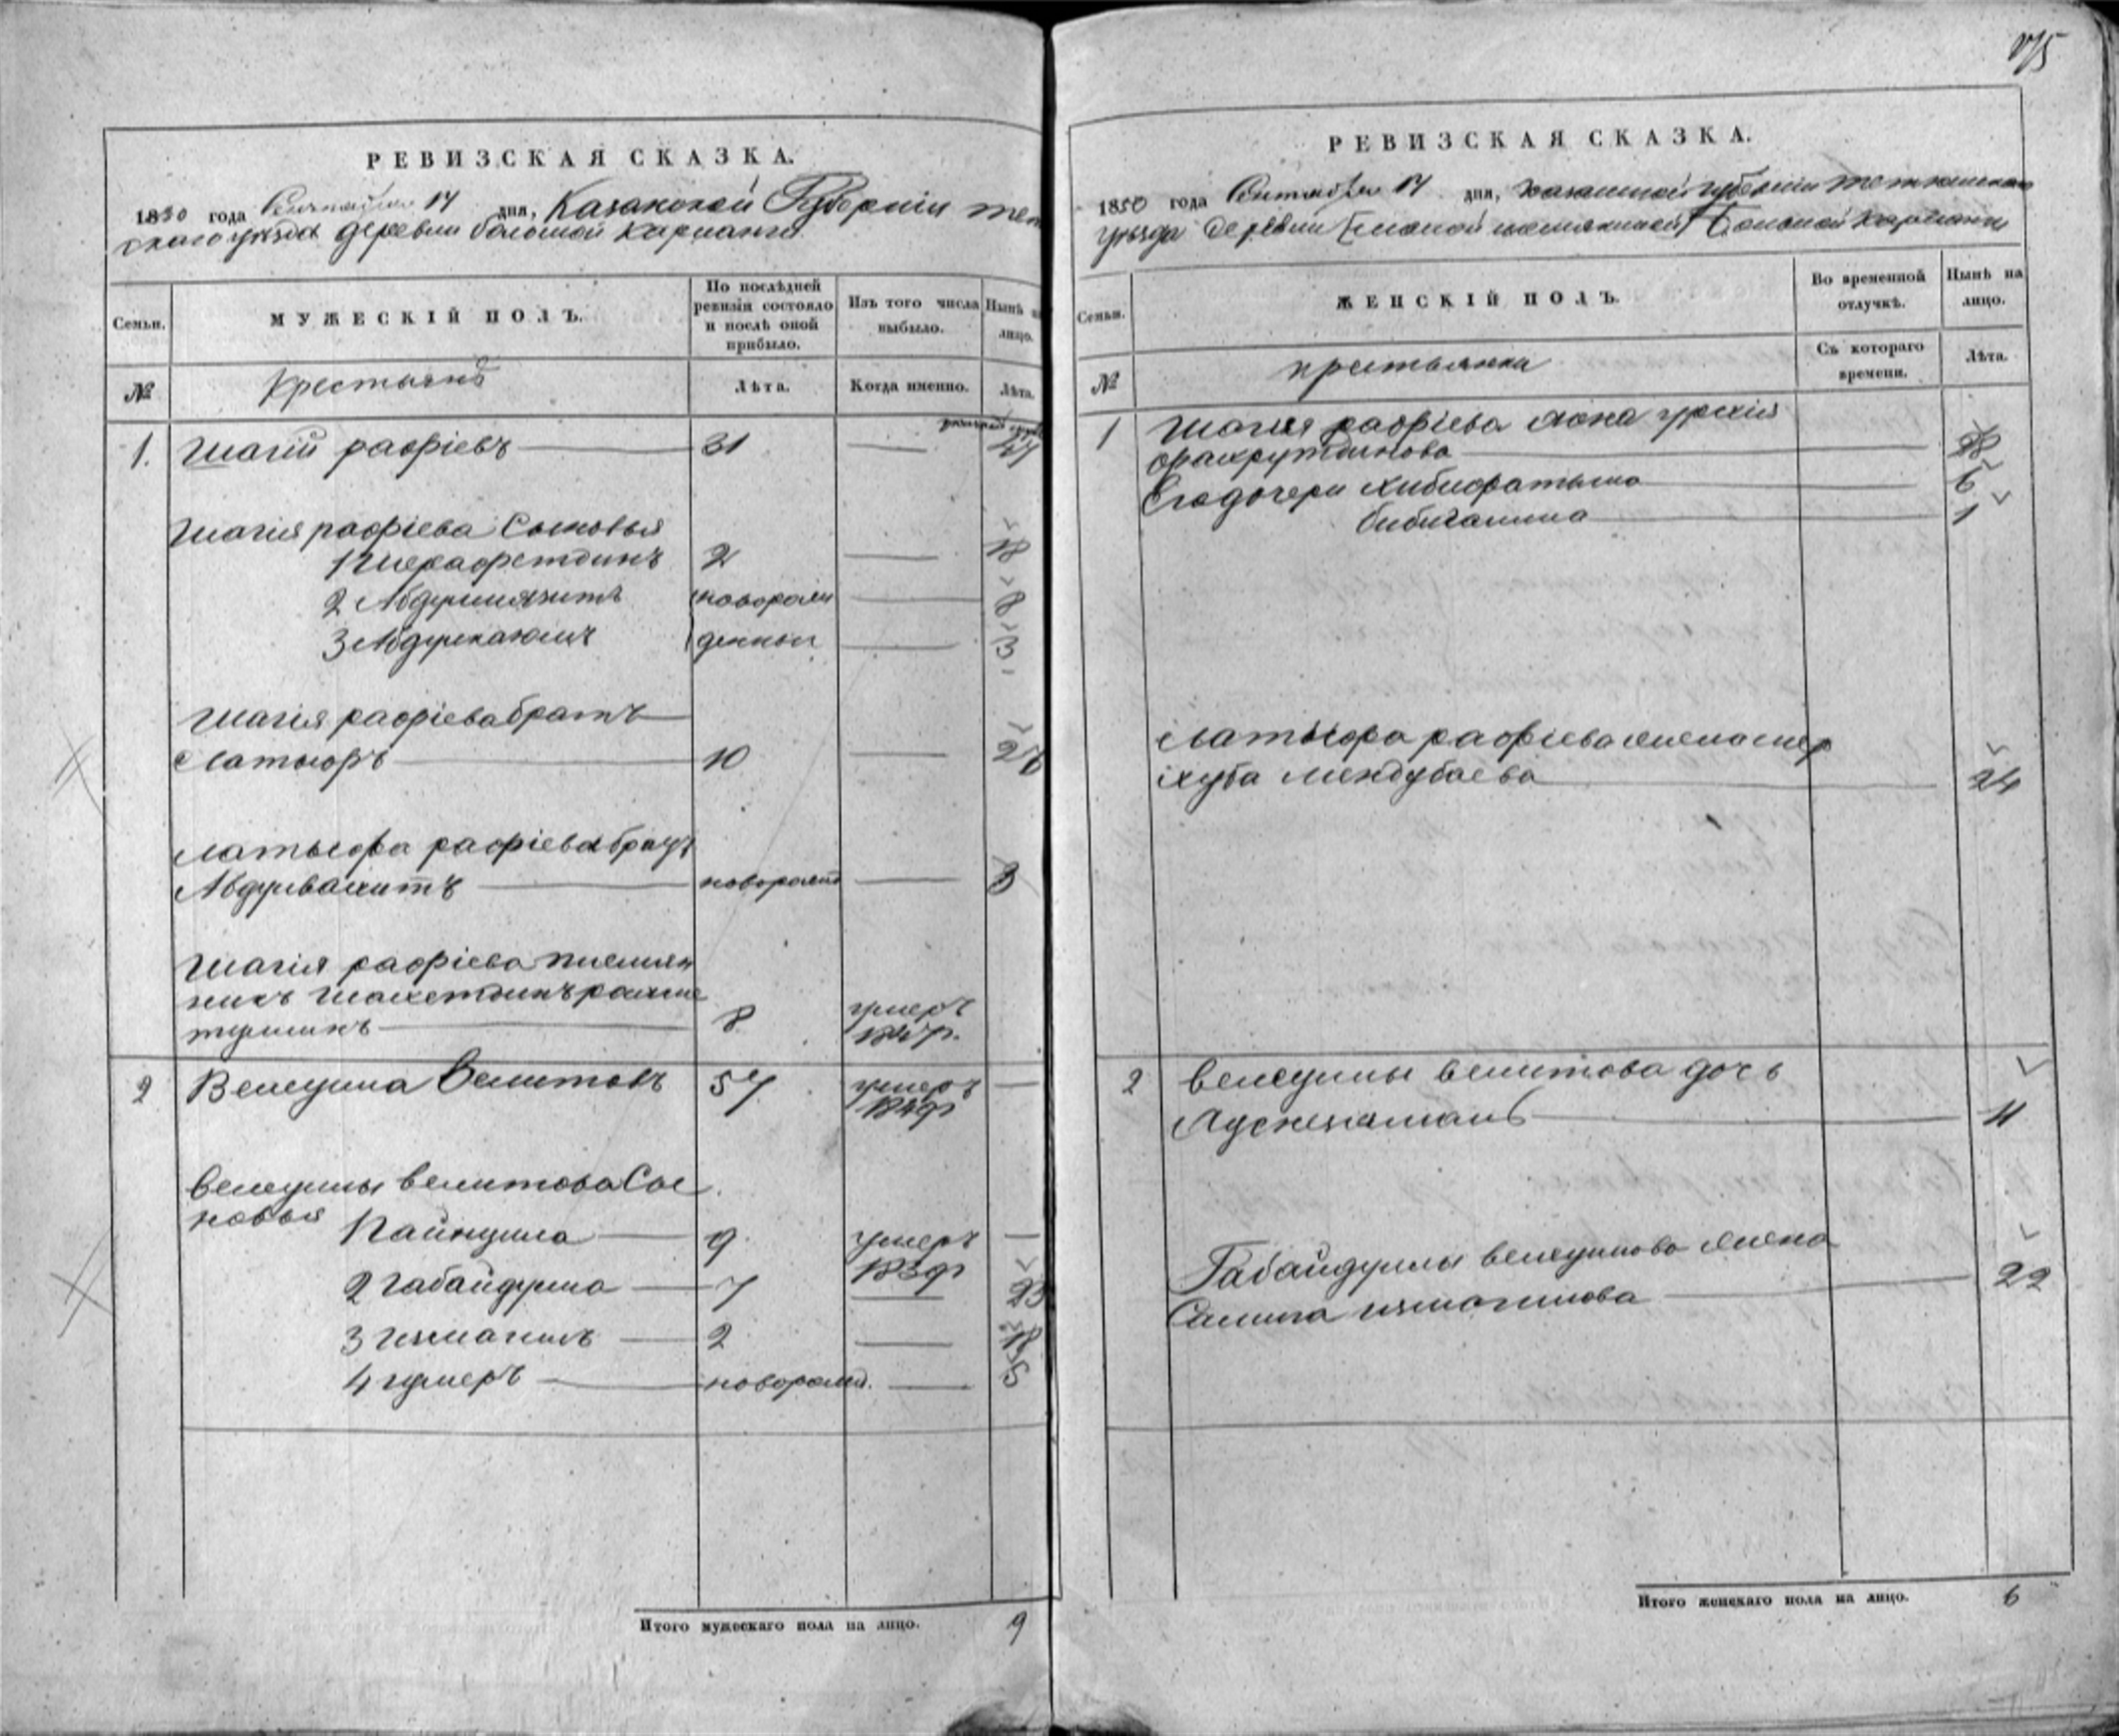 РЕВИЗСКАЯ СКАЗКА.
1850 года Сентября 14 дня, Казанской Губерніи тет
скаго уѣзда деревни болшой карланги
Семьи. МУЖЕСКІЙ ПОЛЪ. По послѣдней ревизіи состояло и послѣ оной прибыло. Изъ того числа выбыло. Нынѣ на лицо.
№ Крестьянъ Лѣта. Когда именно. Лѣта.
1. Шагій рафіевъ 31 47
Шагія рафіева Сыновья
1 Шерафетдинъ 2 18
2 Абдулмязитъ новорож 8
3 Абдулкаюмъ денныи 3
Шагія рафіева братъ
Латыфъ 10 26
латыфа рафіева братъ
Абдулвахитъ новорожд 3
Шагія рафіева племян
никъ Шахетдинъ рахме
туллинъ 8 умеръ 1847
2 Велеулла Велитовъ 57 умеръ 1849
велеуллы велитова Сы
новья 1 Гайнулла 9 умеръ 1839
2 габайдулла 7 23
3 измагилъ 2 18
4 гумеръ новорожд. 5
Итого мужескаго пола на лицо. 9
875
РЕВИЗСКАЯ СКАЗКА.
1850 года Сентября 14 дня, казанской губерніи тетюшскаго
уѣзда деревни Болшой карланги
Семьи. ЖЕНСКІЙ ПОЛЪ. Во временной отлучкѣ. Нынѣ на лицо.
№ крестьянка Съ котораго времени. Лѣта.
1 Шагия рафіева жона
фахрутдинова 38
Его дочери хибифатыма 6
бибигалима 1
латыфа рафіева жена
мендубаева 24
2 велеуллы велитова дочь
11
Габайдуллы велеуллова жена
Салима измагилова 22
Итого женскаго пола на лицо. 6